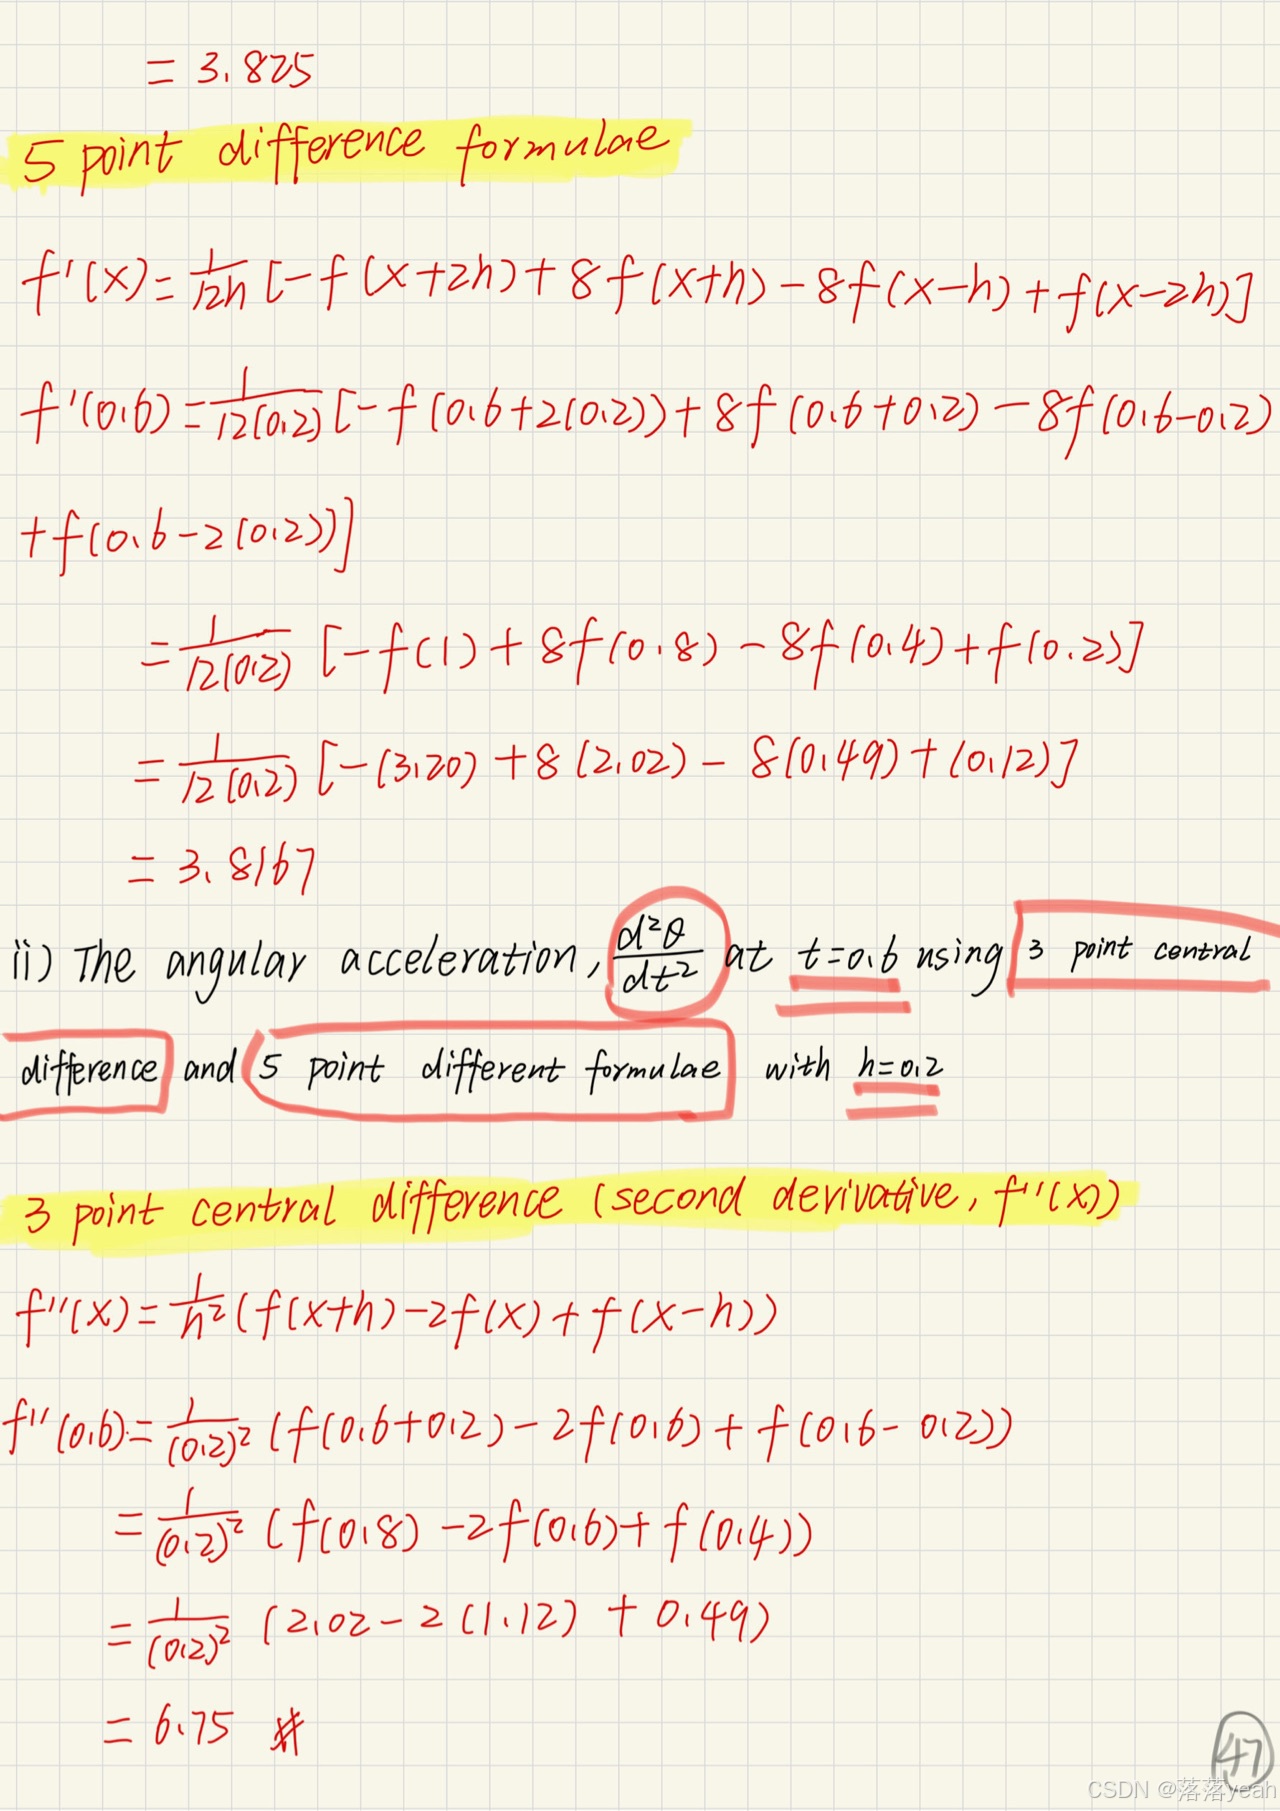 = 3.825
5 point difference formulae
f'(x) = 1/12h [-f(x+2h) + 8f(x+h) - 8f(x-h) + f(x-2h)]
f'(0.6) = 1/12(0.2) [-f(0.6+2(0.2)) + 8f(0.6+0.2) - 8f(0.6-0.2)
+ f(0.6-2(0.2))]
= 1/12(0.2) [-f(1) + 8f(0.8) - 8f(0.4) + f(0.2)]
= 1/12(0.2) [-(3.20) + 8(2.02) - 8(0.49) + (0.12)]
= 3.8167
ii) The angular acceleration, d²θ/dt² at t=0.6 using 3 point central
difference and 5 point different formulae with h=0.2
3 point central difference (second derivative, f''(x))
f''(x) = 1/h² (f(x+h) - 2f(x) + f(x-h))
f''(0.6) = 1/(0.2)² (f(0.6+0.2) - 2f(0.6) + f(0.6-0.2))
= 1/(0.2)² (f(0.8) - 2f(0.6) + f(0.4))
= 1/(0.2)² (2.02 - 2(1.12) + 0.49)
= 6.75 #
47
CSDN @落落yeah